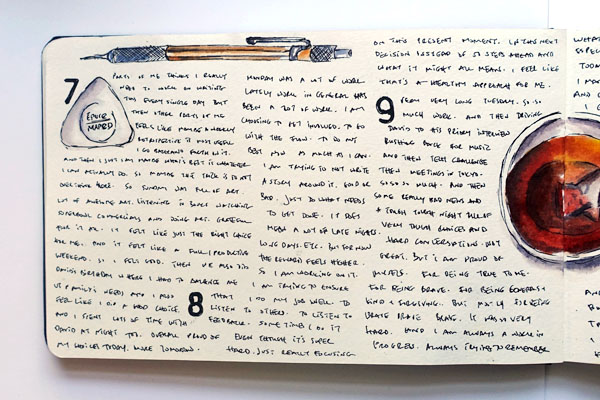 7
PARTS OF ME THINKS I REALLY
NEED TO WORK ON WRITING
THIS EVERY SINGLE DAY BUT
THEN OTHER PARTS OF ME
FEELS LIKE MAKING A WEEKLY
RETROSPECTIVE IS MOST USEFUL
I GO BACK AND FORTH ON IT.
AND THEN I JUST MAKE WHAT'S BEST IS WHATEVER
I CAN ACTUALLY DO. SO MAYBE THE TRICK IS TO NOT
OVERTHINK HERE. SO SUNDAY WAS FULL OF ART.
LOTS OF AWESOME ART. LISTENING TO BOOKS WATCHING
AND DOING ART. GRATEFUL
FOR IT ALL. IT FELT LIKE JUST THE RIGHT CHOICE
FOR ME. AND IT FELT LIKE A FULL PRODUCTIVE
WEEKEND. SO I FELT GOOD. THEN WE ALSO DID
DAVID'S BIRTHDAY WHERE I HAD TO BALANCE ME
VS FAMILY'S NEEDS AND I ALSO
FEEL LIKE I DID A GOOD CHOICE.
AND I SPENT LOTS OF TIME WITH
DAVID AT NIGHT TOO. OVERALL PROUD OF
MY CHOICES TODAY. MORE TOMORROW.
8
MONDAY WAS A LOT OF WORK
LATELY WORK IN GENERAL HAS
BEEN A LOT OF WORK. I AM
CHOOSING TO GET INVOLVED. TO GO
WITH THE FLOW. TO DO MY
BEST NOW AS MUCH AS I CAN.
I AM TRYING TO NOT WRITE
A STORY AROUND IT. GOOD OR
BAD. JUST DO WHAT NEEDS
TO GET DONE. IT DOES
MEAN A LOT OF NIGHTS
LONG DAYS. ETC. BUT FOR NOW
THE REWARD FEELS HIGHER.
SO I AM WORKING ON IT.
I AM TRYING TO ENSURE
THAT I DO MY JOB WELL. TO
LISTEN TO OTHERS. TO LISTEN TO
FEEDBACK. SOMETIMES I DO IT
EVEN THOUGH IT'S SUPER
HARD. JUST REALLY FOCUSING
ON THIS PRESENT MOMENT. IN THIS NEXT
DECISION INSTEAD OF 50 STEPS AHEAD AND
WHAT IT MIGHT ALL MEAN. I FEEL LIKE
THAT'S A HEALTHY APPROACH FOR ME.
9
VERY LONG TUESDAY. SO SO
MUCH WORK. AND THEN DRIVING
DAVID TO HIS INTERVIEW
RUSHING BACK FOR MUSIC
AND THEN TECH CHALLENGE
THEN MEETINGS W TOKYO.
SO SO SO MUCH. AND THEN
SOME REALLY BAD NEWS AND
A TOUGH TOUGH NIGHT FULL OF
VERY TOUGH CHOICES AND
HARD CONVERSATION. NOT
GREAT. BUT I AM PROUD OF
MYSELF. FOR BEING TRUE TO ME.
FOR BEING BRAVE. FOR BEING
KIND & FORGIVING. BUT MOSTLY FOR BEING
BRAVE BRAVE BRAVE. IT WAS SO VERY
HARD. AND I AM ALWAYS A WORK IN
PROGRESS. ALWAYS TRYING TO REMEMBER
WHAT
TODAY